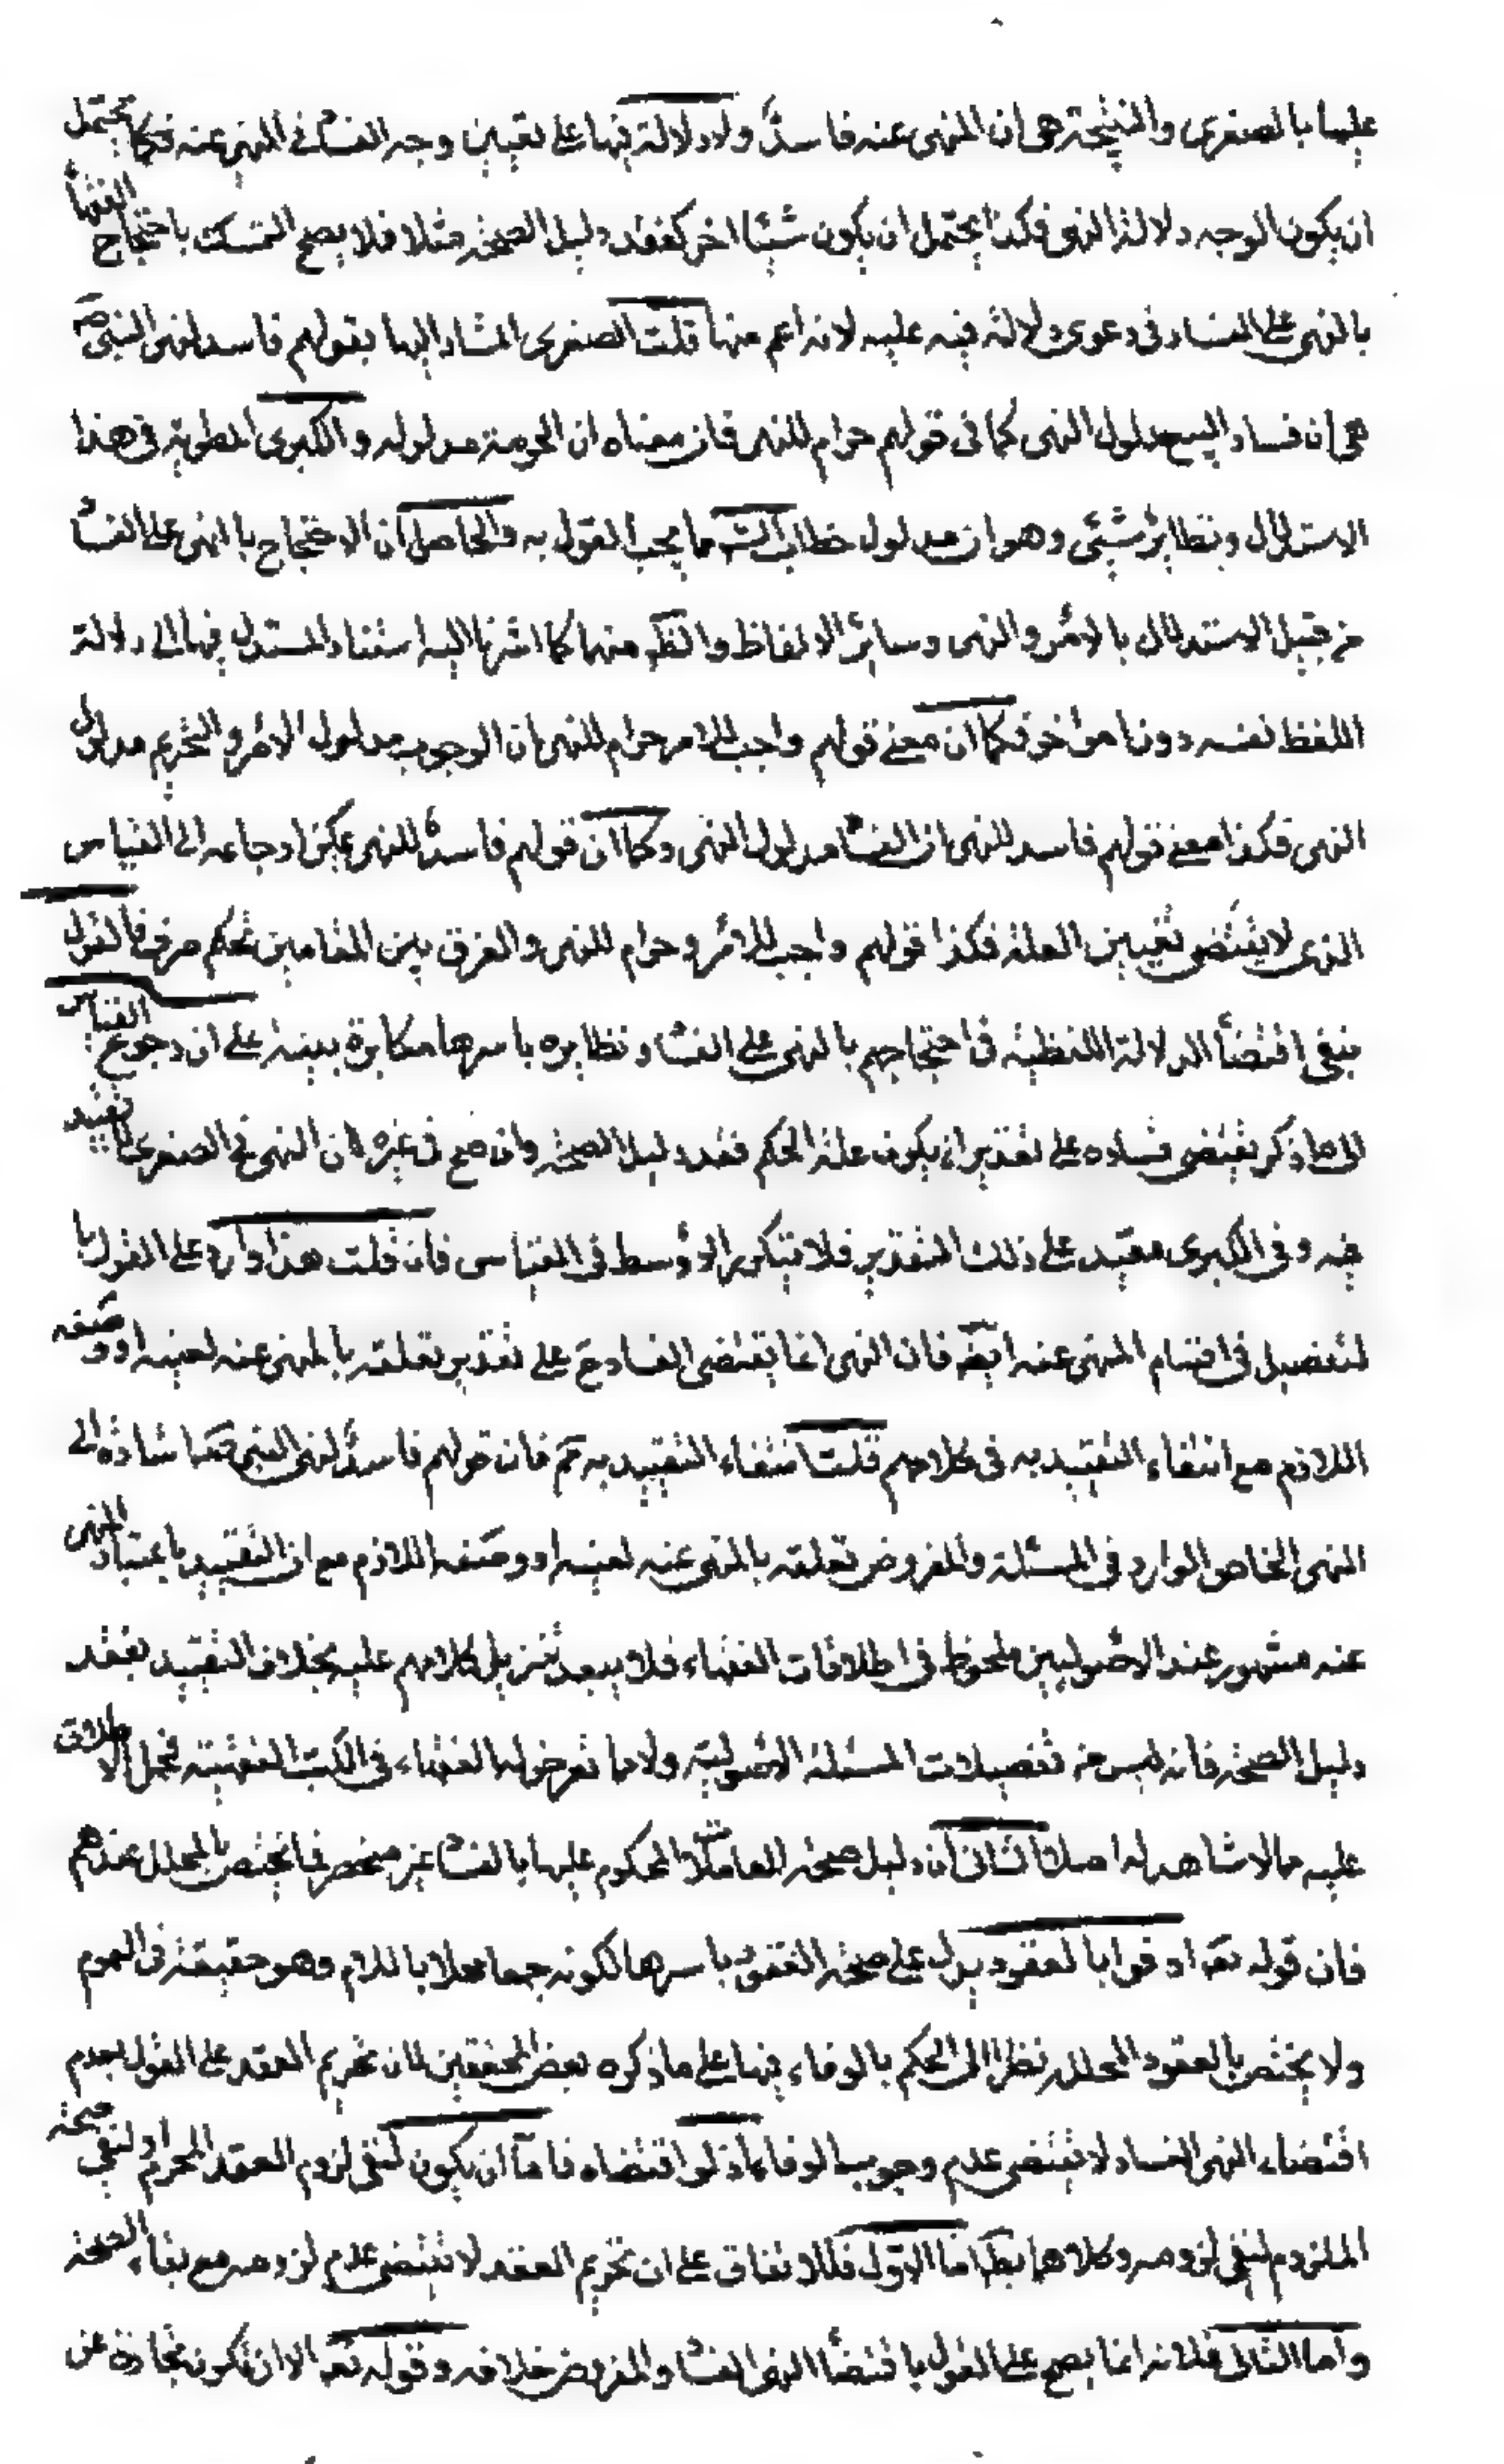 عليها بالصغرى والنتيجة هى ان المنهى عنه فاسد ولا دلالة فيها على تعيين وجه الفسا فى المنهى عنه فكما يحتمل
ان يكون الوجه دلالة النهى فكذا يحتمل ان يكون شيئا اخر كفقد دليل الصحة مثلا فلا يصح التمسك باحتجاج الفقهاء
بالنهى على الفساد فى دعوى دلالة فيه عليه لانه اعم منها قلت الصغرى المشار اليها بقولهم فاسد لنهى النبى ص
هى ان فساد البيع مدلول النهى كما فى قولهم حرام للنهى فان معناه ان الحرمة مدلوله والكبرى المطوية فى هذا
الاستدلال ونظائره شيئى وهو ان مدلول خطاب الشـ مما يجب القول به والحاصل ان الاحتجاج بالنهى على الفسا
من قبيل الاستدلال بالامر والنهى وسائر الالفاظ والظ منهما كما اشرنا اليه استناد المستدل فيها الى دلالة
اللفظ نفسه دون امر اخر فكما ان معنى قولهم واجب للامر حرام للنهى ان الوجوب مدلول الامر والتحريم مدلول
النهى فكذا معنى قولهم فاسد للنهى ان الفسا مدلول النهى وكما ان قولهم فاسد للنهى يمكن ارجاعه الى القياس
الذى لا يقتضى تعيين العلة فكذا قولهم واجب للامر وحرام للنهى والفرق بين المقامين تحكم صرف فالقول
بنفى اقتضا الدلالة اللفظية فى احتجاجهم بالنهى على الفسا ونظايره باسرها مكابرة بينة على ان رجوع القياس
الى ما ذكر يقتضى فساده على تقدير ان يكون علة الحكم فقد دليل الصحة وان صح فى غيره لان النهى فى الصغرى لا تقييد
فيه وفى الكبرى مقيد على ذلك التقدير فلا يتكرر الاوسط فى القياس فان قلت هذا وارد على القول با
لتفصيل فى اقسام المنهى عنه ايضه فان النهى انما يقتضى الفساد ح على تقدير تعلقه بالمنهى عنه لعينه او وصفه
اللازم مع انتفاء التقييد به فى كلامهم قلت انتفاء التقييد به مم فان قولهم فاسد لنهى النبى ص اشارة الى
النهى الخاص الوارد فى المسئلة والمفروض تعلقه بالمنهى عنه لعينه او وصفه اللازم مع ان التقييد باعتبار المنهى
عنه مشهور عند الاصوليين ملحوظ فى اطلاقات الفقهاء فلا يبعد تنزيل كلامهم عليه بخلاف التقييد بفقد
دليل الصحة فانه ليس من تفصيلات المسئلة الاصولية ولا مما تعرض له الفقهاء فى الكتب الفقهية فحمل الاطلاق
عليه مما لا شاهد له اصلا الثانى ان دليل صحة المعاملات المحكوم عليها بالفسا غير منحصر فيما يختص بالمحلل عندهم
فان قوله تعه اوفوا بالعقود يدل على صحة العقود باسرها لكونه جمعا محلا باللام وهو حقيقة فى العموم
ولا يختص بالعقود المحللة نظرا الى الحكم بالوفاء فيها على ما ذكره بعض المحققين لان تحريم العقد على القول بعدم
اقتضاء النهى الفساد لا يقتضى عدم وجوب الوفاء اذ لو اقتضاه فاما ان يكون لنفى لزوم العقد المحرم او لنفى صحة
الملزوم لنفى لزومه وكلاهما بط اما الاول فللاتفاق على ان تحريم العقد لا يقتضى عدم لزومه مع بقاء الصحة
واما الثانى فلانه انما يصح على القول باقتضا النهى الفسا والمفروض خلافه وقوله تعه الا ان تكون تجارة عن